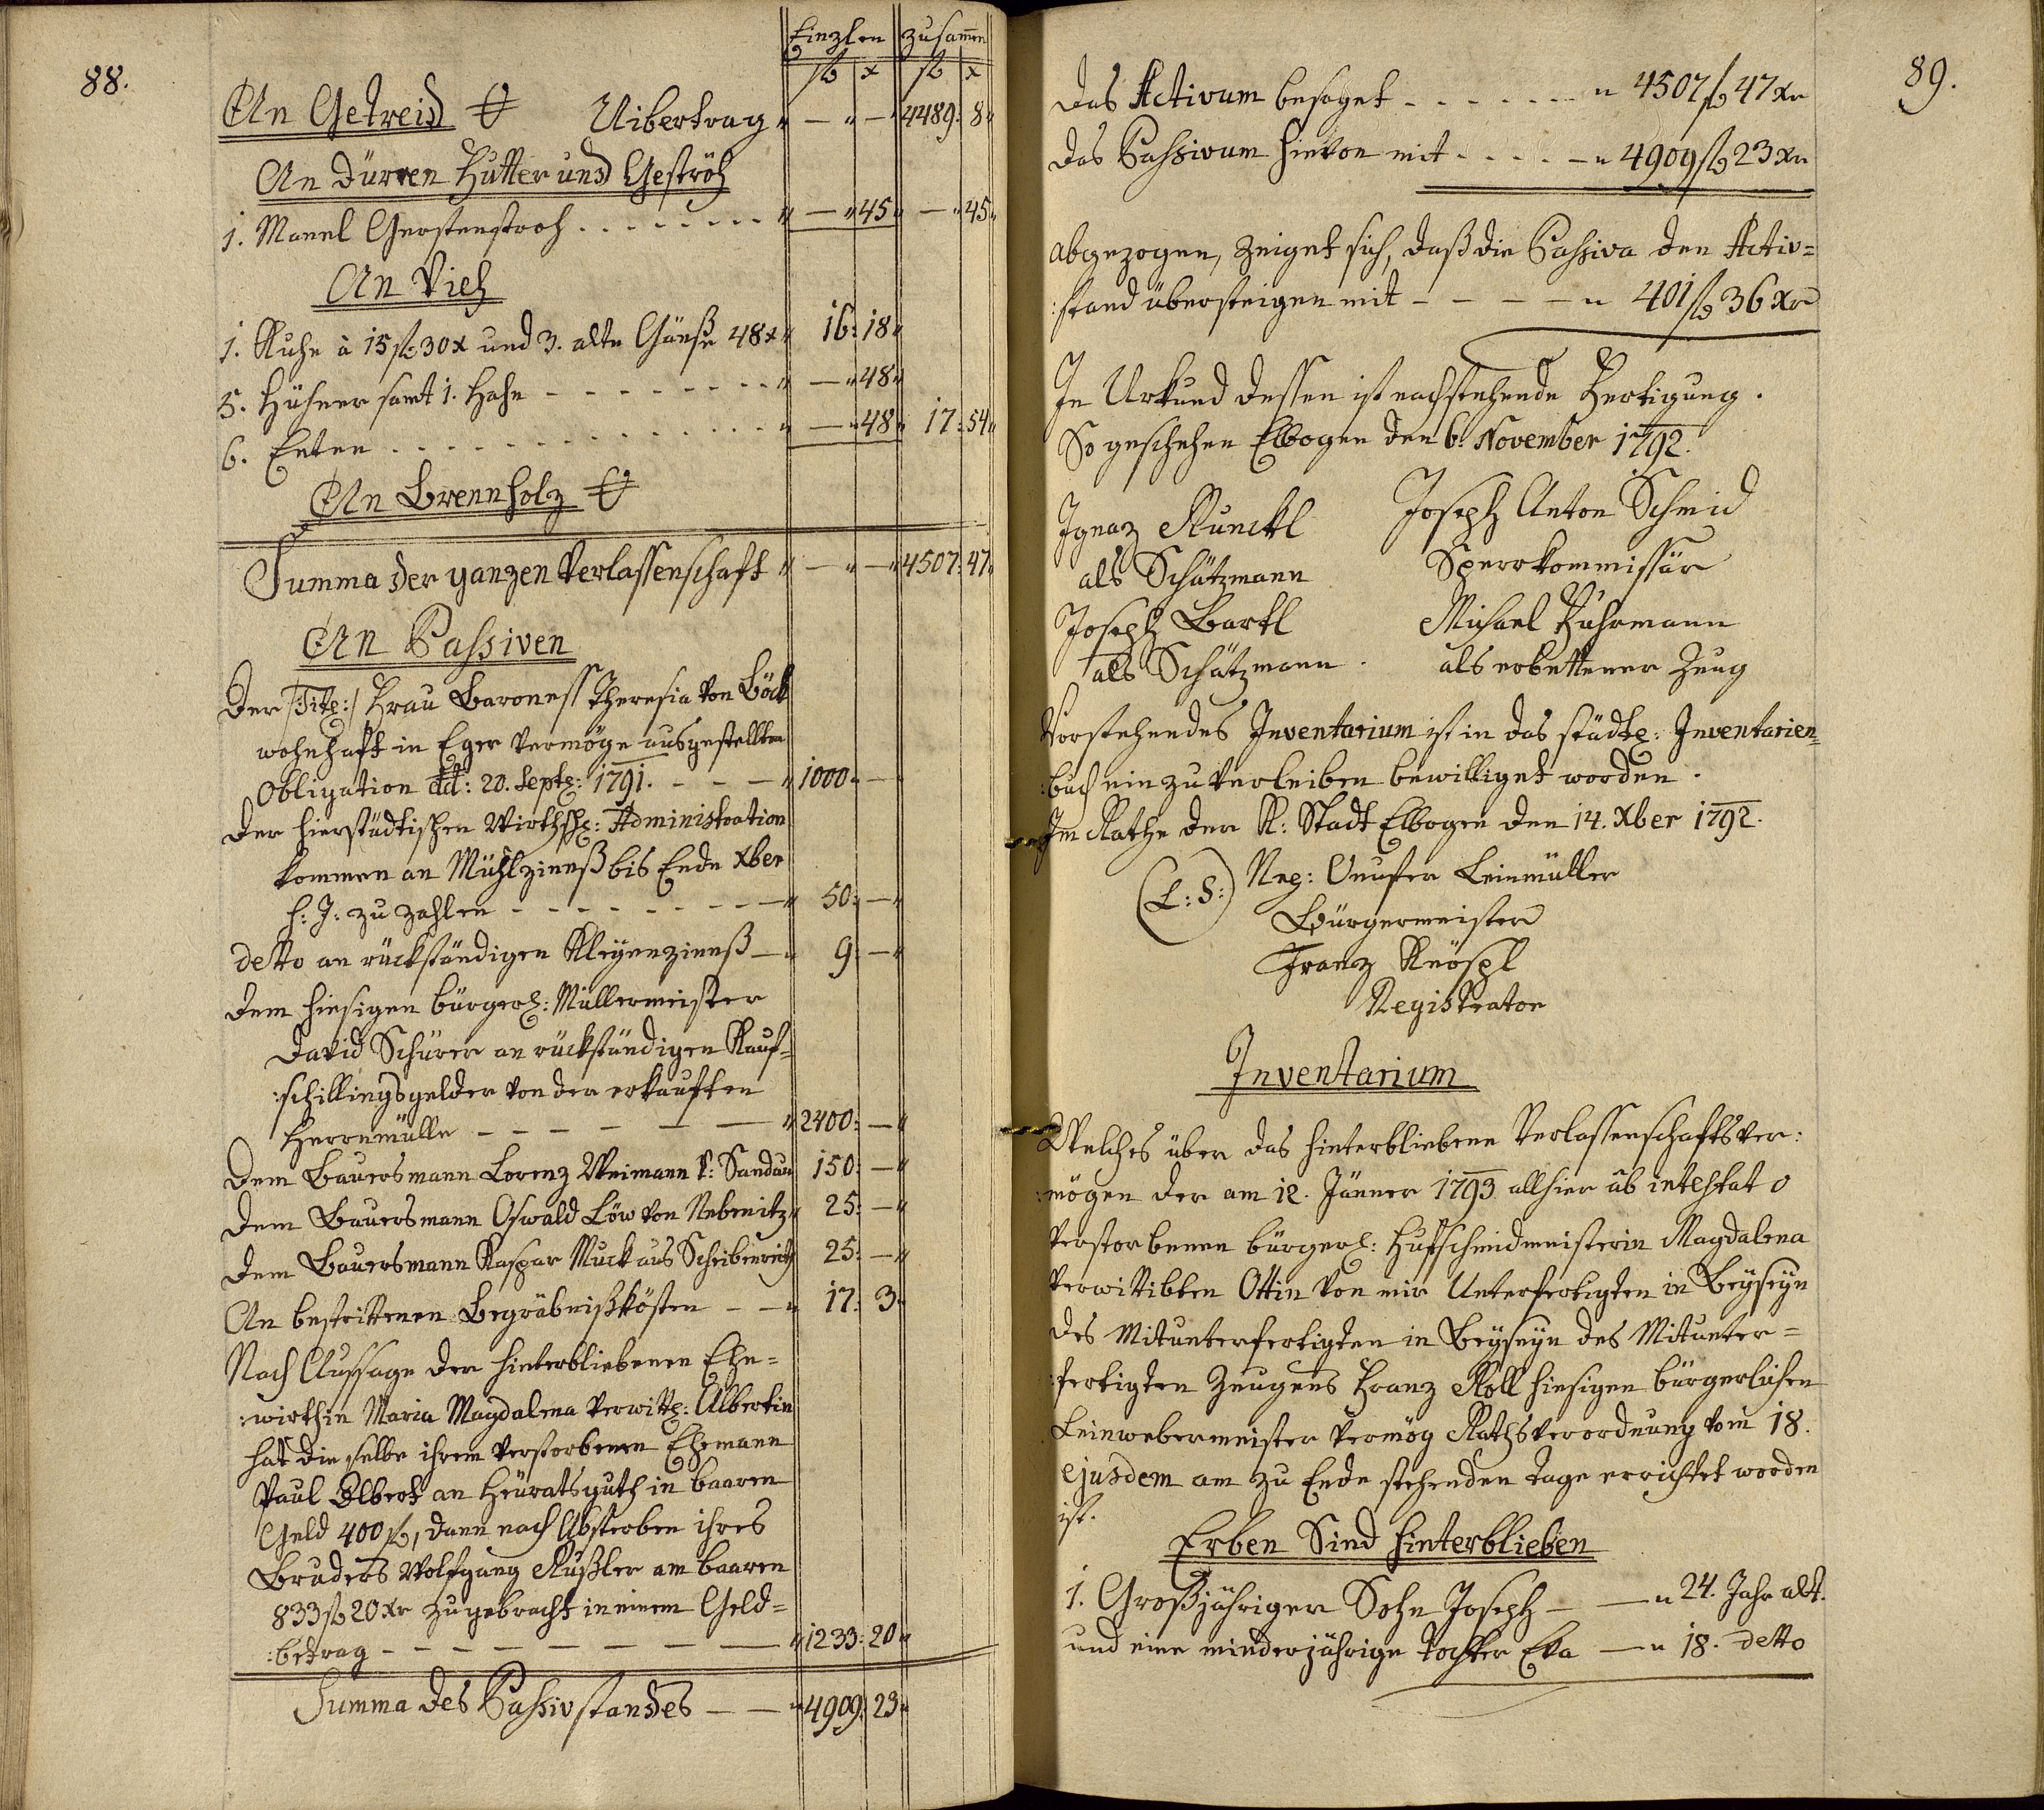 88.
Einzlen zusam̄en
fl x fl x
An Getreid Uibertrag — — 4489: 8
An dürren Futter und Geströh
1. Manel Gerstenstroh — 45 — 45
An Vieh
1. Kuhe à 15 fl: 30 x und 3. alte Gänse 48 x 16: 18
5. Hühner samt 1. Hahn — 48
6. Enten — 48 17: 54
An Brennholz
Summa der ganzen Verlassenschaft — — 4507: 47
An Passiven
Der /:Titl:/ Frau Baroness Theresia von Böck
wohnhaft in Eger vermöge ausgestellten
Obligation dd: 20. Septb: 1791. 1000 —
Der hierstädtischen Wirthsch: Administration
kommen an Mühlzinnß bis Ende Xber
h: J: zu zahlen 50: —
detto an rückständigen Kleyenzinnß 9: —
Dem hiesigen bürgerl: Müllermeister
David Schürer an rückständigen Kauf=
:schillingsgelder von der erkauften
Herrnmülle 2400: —
Dem Bauersmann Lorenz Weimann v: Sandau 150: —
Dem Bauersmann Oswald Löw von Nebenitz 25: —
Dem Bauersmann Kaspar Muck aus Scheibenrith 25: —
An bestrittenen Begräbnißkösten 17: 3
Nach Aussage der hinterbliebenen Ehe=
:wirthin Maria Magdalena verwitt: Albertin
hat die selbe ihrem verstorbenen Ehemann
Paul Albert an Heüratsguth in baaren
Geld 400 fl, dann nach Absterben ihres
Bruders Wolfgang Kußler am baaren
833 fl 20 Xr zugebracht in einem Geld=
:betrag 1233: 20
Summa des Passivstandes 4909: 23
89.
Das Activum besaget 4507 fl 47 Xr
Das Passivum hievon mit 4909 fl 23 Xr
abgezogen, zeiget sich, daß die Passiva den Activ=
:stand übersteigen mit 401 fl 36 Xr
In Urkund dessen ist nachstehende Fertigung.
So geschehen Elbogen den 6. November 1792.
Ignaz Kunckl Joseph Anton Schmid
als Schätzmann Sperrkommissär
Joseph Bartl Michael Fuhrmann
als Schätzmann. als erbettener Zeug
Vorstehendes Inventarium ist in das städtl: Inventarien=
:buch einzuverleiben bewilliget worden.
Im Rathe der K: Stadt Elbogen den 14. Xber 1792.
(L: S:) Onufer Leinmüller
Bürgermeister
Franz Knöspl
Registrator
Inventarium
Welches über das hinterbliebene Verlassenschaftsver:
:mögen der am 12. Jänner 1793. allhier ab intestato
verstorbenen bürgerl: Hufschmidmeisterin Magdalena
verwittibten Ottin von mir Unterfertigten in Beyseyn
des Mitunterfertigten in Beyseyn des Mitunter=
:fertigten Zeugens Franz Koll hiesigen bürgerlichen
Leinwebermeister vermög Rathsverordnung vom 18.
ejusdem am zu Ende stehenden Tage errichtet worden
ist.
Erben Sind hinterblieben
1. Großjähriger Sohn Joseph 24. Jahr alt.
und eine minderjährige Tochter Eva 18. detto